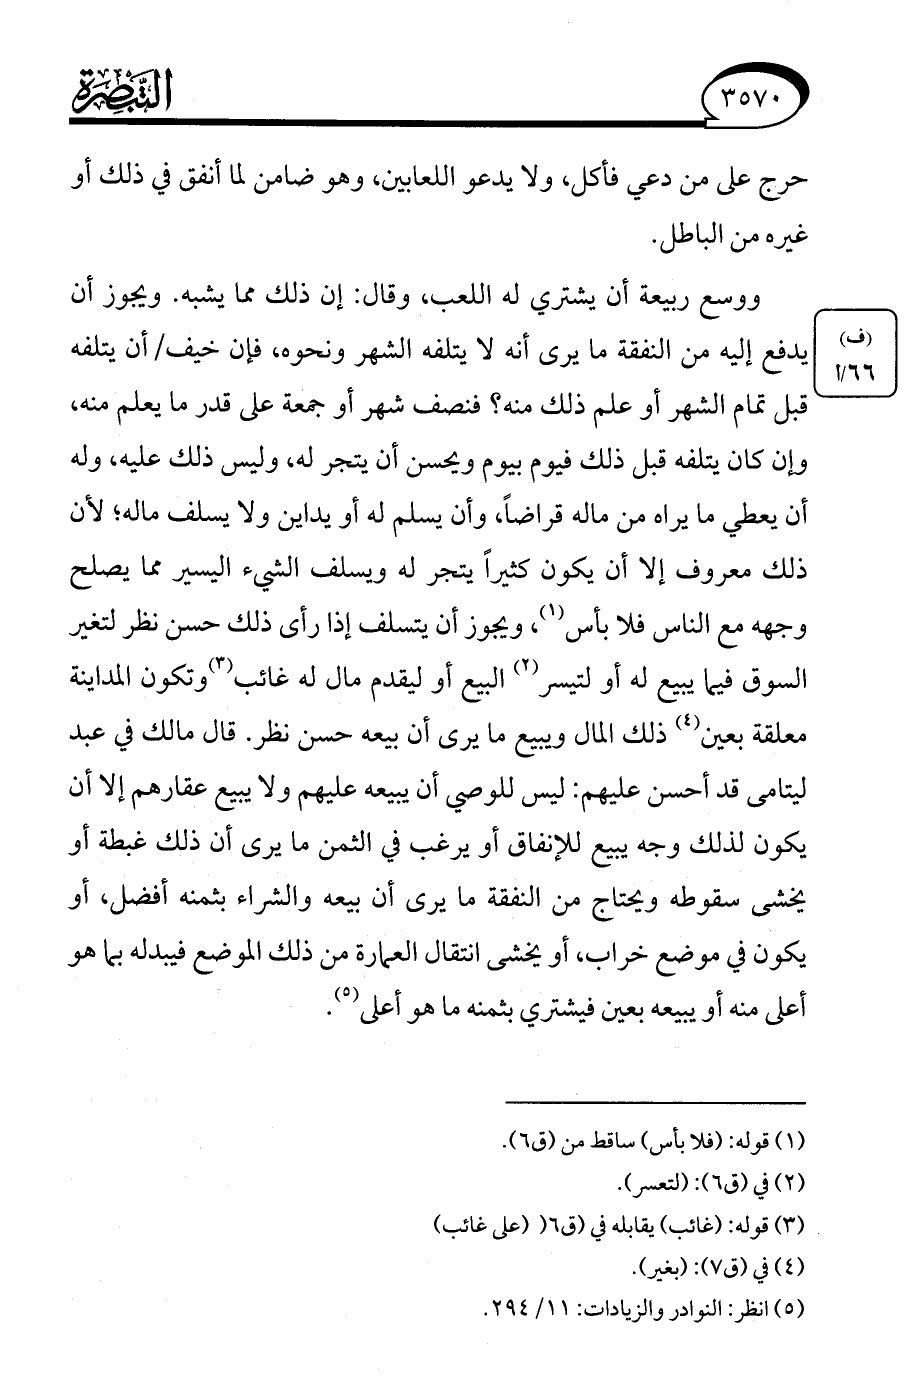 التبصرة
٣٥٧٠
حرج على من دعي فأكل، ولا يدعو اللعابين، وهو ضامن لما أنفق في ذلك أو
غيره من الباطل.
ووسع ربيعة أن يشتري له اللعب، وقال: إن ذلك مما يشبه. ويجوز أن
يدفع إليه من النفقة ما يرى أنه لا يتلفه الشهر ونحوه، فإن خيف/ أن يتلفه
(ف)
٦٦/أ
قبل تمام الشهر أو علم ذلك منه؟ فنصف شهر أو جمعة على قدر ما يعلم منه،
وإن كان يتلفه قبل ذلك فيوم بيوم ويحسن أن يتجر له، وليس ذلك عليه، وله
أن يعطي ما يراه من ماله قراضاً، وأن يسلم له أو يداين ولا يسلف ماله؛ لأن
ذلك معروف إلا أن يكون كثيراً يتجر له ويسلف الشيء اليسير مما يصلح
وجهه مع الناس فلا بأس(١)، ويجوز أن يتسلف إذا رأى ذلك حسن نظر لتغير
السوق فيما يبيع له أو لتيسر(٢) البيع أو ليقدم مال له غائب(٣)وتكون المداينة
معلقة بعين(٤) ذلك المال ويبيع ما يرى أن بيعه حسن نظر. قال مالك في عبد
ليتامى قد أحسن عليهم: ليس للوصي أن يبيعه عليهم ولا يبيع عقارهم إلا أن
يكون لذلك وجه يبيع للإنفاق أو يرغب في الثمن ما يرى أن ذلك غبطة أو
يخشى سقوطه ويحتاج من النفقة ما يرى أن بيعه والشراء بثمنه أفضل، أو
يكون في موضع خراب، أو يخشى انتقال العمارة من ذلك الموضع فيبدله بما هو
أعلى منه أو يبيعه بعين فيشتري بثمنه ما هو أعلى(٥).
(١) قوله: (فلا بأس) ساقط من (ق٦).
(٢) في (ق٦): (لتعسر).
(٣) قوله: (غائب) يقابله في (ق٦( (على غائب)
(٤) في (ق٧): (بغير).
(٥) انظر: النوادر والزيادات: ١١/ ٢٩٤.